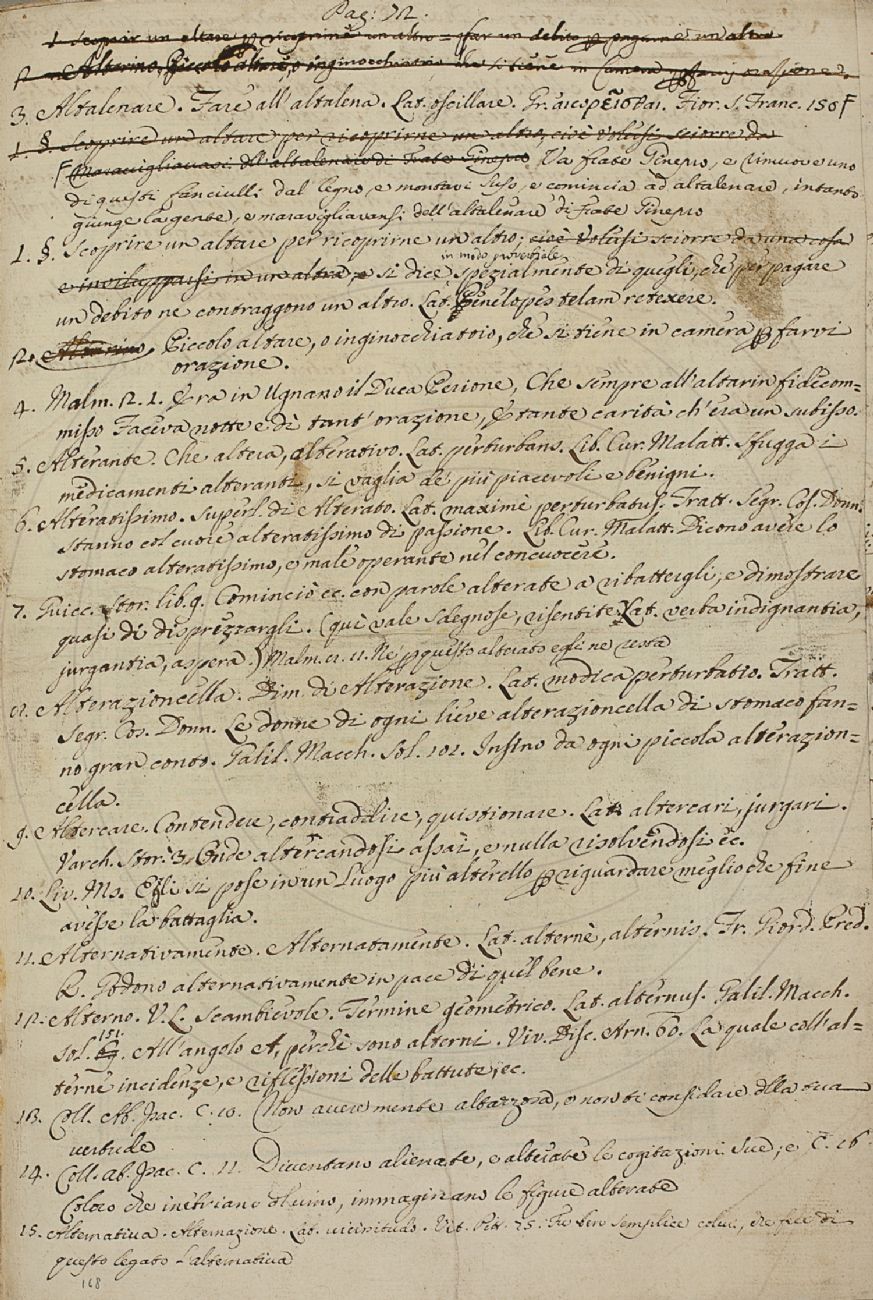 Pag: 72.
1 Scoprir un altare p ricoprirne un altro = far un debito p pagarne un altro
2 Altarino, Piccolo altare, o inginocchiatoio che si tiene in Camera p farvi orazione.
3. Altalenare. Fare all'altalena. Lat. oscillare. Gr. Fior. S. Franc. 156 F
1. §. Scoprire un altare per ricoprirne un altro, cioè volersi sciorre da
F Maravigliavasi dell'altalenare di Frate Ginepro Va frate Ginepro, e rimuove uno
di questi fanciulli dal legno e montavi suso, e comincia ad altalenare, intanto
giunge la gente, e maravigliavansi dell'altalenare di Frate Ginepro
1. §. Scoprire un altare per ricoprirne un altro; cioè volersi sciorre da una cosa
in modo proverbiale
e invilupparsi in un'altra, e si dice spezialmente di quegli, che per pagare
un debito ne contraggono un altro. Lat. Penelopes telam retexere.
2. Altarino Piccolo altare, o inginocchiatoio, che si tiene in camera p farvi
orazione.
4. Malm. 2. 1. Era in Ugnano il Duca Perione, Che sempre all'altarin fidecom=
misso Faceva notte e dì tant'orazione, E tante carità ch'era un subisso.
5. Alterante. Che altera, alterativo. Lat. perturbans. Lib. Cur. Malatt. Sfugga i
medicamenti alteranti, si vaglia de' più piacevoli e benigni.
6. Alteratissimo. Superl. di Alterato. Lat. maximè perturbatus. Tratt. Segr. Cos. Donn.
Stanno col cuore alteratissimo di passione. Lib. Cur. Malatt. Dicono avere lo
stomaco alteratissimo, e male operante nel concuocere.
7. Guicc. Stor. lib. 9. Cominciò ec. con parole alterate a ribattergli, e dimostrare
quasi di disprezzargli. (quì vale sdegnose, risentite Lat. verba indignantia,
jurgantia, aspera.) Malm. 11. Nè p questo alterato egli ne resta
8. Alterazioncella. Dim. di Alterazione. Lat. modica perturbatio. Tratt.
Segr. Cos. Donn. Le donne di ogni lieve alterazioncella di stomaco fan=
no gran conto. Galil. Macch. Sol. 101. Insino da ogni piccola alterazion=
cella.
9. Altercare. Contendere, contraddire, quistionare. Lat. altercari, jurgari.
Varch. Stor. 3. Onde altercandosi assai, e nulla risolvendosi ec.
10. Liv. Ms. Egli si pose in un Luogo più alterello p riguardare meglio che fine
avesse la battaglia.
11. Alternativamente. Alternatamente. Lat. alternè, alternis. Fr. Giord. Pred.
R. Godono alternativamente in pace di quel bene.
12. Alterno. V. L. Scambievole. Termine geometrico. Lat. alternus. Galil. Macch.
151.
Sol. All'angolo A, perchè sono alterni. Viv. Disc. Arn. 60. La quale coll'al=
terne incidenze, e riflessioni delle battute, ec.
13. Coll. Ab. Isac. C. 10. Non avere mente altezzosa, o non ti confidare della tua
vertude
14. Coll. ab. Isac. C. 11. Diventano alienate, e alterate le cogitazioni sue; e C. 26
Coloro che inebriano di vino, immaginano le figure alterate
15. Alternativa. Alternazione. Lat. vicissitudo. Vit. Pitt. 75. Fu ben semplice colui, che fece di
questo legato l'alternativa
168